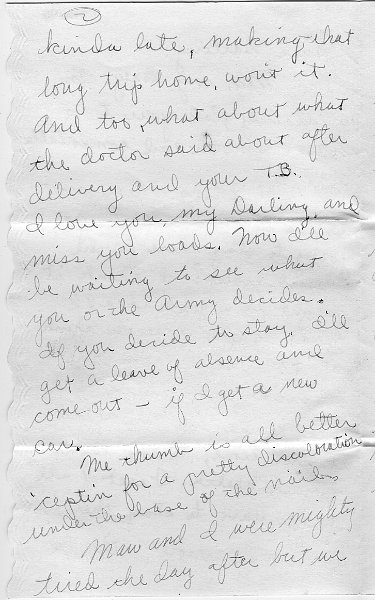 2
kinda late, making that
long trip home, won't it.
And too, what about what
the doctor said about after
delivery and your T.B.
I love you, my Darling, and
miss you loads. Now I'll
be waiting to see what
you or the Army decides.
If you decide to stay, I'll
get a leave of absence and
come out – if I get a new
car.
Me thumb is all better
'ceptin for a pretty discoloration
under the base of the nail.
Maw and I were mighty
tired the day after but we